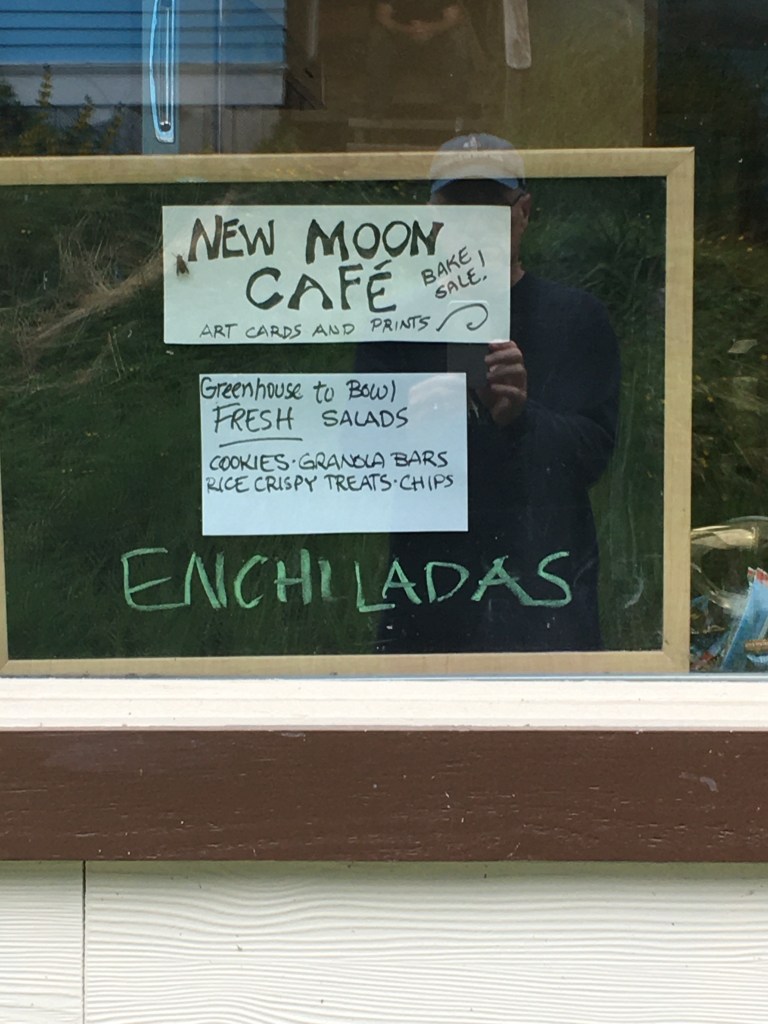 NEW MOON
CAFÉ
BAKE
SALE!
ART CARDS AND PRINTS
Greenhouse to Bowl
FRESH SALADS
COOKIES·GRANOLA BARS
RICE CRISPY TREATS·CHIPS
ENCHILADAS